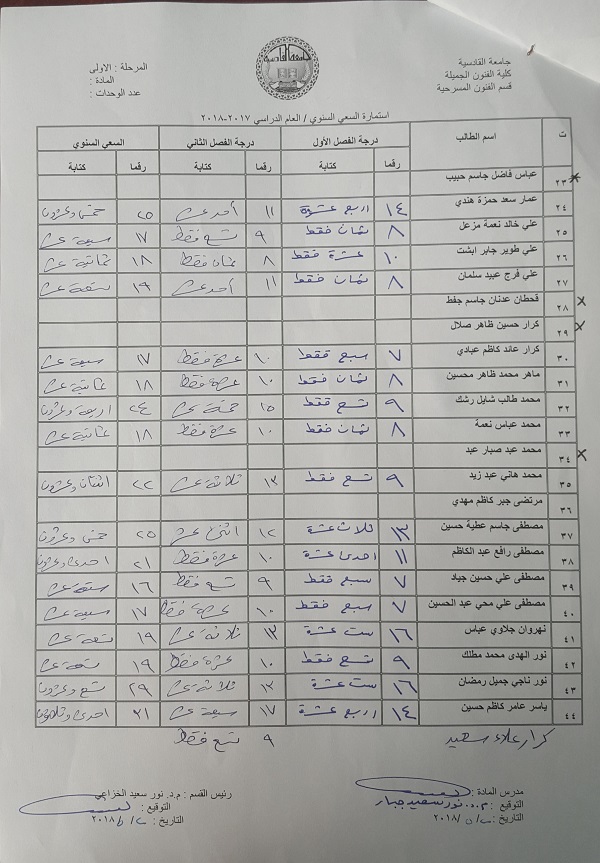 جامعة القادسية
كلية الفنون الجميلة
قسم الفنون المسرحية
المرحلة : الاولى
المادة :
عدد الوحدات :
استمارة السعي السنوي / العام الدراسي ٢٠١٧-٢٠١٨
ت اسم الطالب درجة الفصل الأول درجة الفصل الثاني السعي السنوي
رقما كتابة رقما كتابة رقما كتابة
٢٣ عباس فاضل جاسم حبيب
٢٤ عمار سعد حمزة هندي ١٤ اربع عشرة ١١ أحد عشر ٢٥ خمس وعشرون
٢٥ علي خالد نعمة مزعل ٨ ثمان فقط ٩ تسع فقط ١٧ سبعة عشر
٢٦ علي طوير جابر ابشت ١٠ عشرة فقط ٨ ثمان فقط ١٨ ثمانية عشر
٢٧ علي فرج عبيد سلمان ٨ ثمان فقط ١١ أحد عشر ١٩ تسعة عشر
٢٨ قحطان عدنان جاسم جفط
٢٩ كرار حسين ظاهر صلال
٣٠ كرار عائد كاظم عبادي ٧ سبع فقط ١٠ عشرة فقط ١٧ سبعة عشر
٣١ ماهر محمد ظاهر محسين ٨ ثمان فقط ١٠ عشرة فقط ١٨ ثمانية عشر
٣٢ محمد طالب شايل رشك ٩ تسع فقط ١٥ خمسة عشر ٢٤ اربعة وعشرون
٣٣ محمد عباس نعمة ٨ ثمان فقط ١٠ عشرة فقط ١٨ ثمانية عشر
٣٤ محمد عبد صبار عبد
٣٥ محمد هاني عبد زيد ٩ تسع فقط ١٣ ثلاثة عشر ٢٢ اثنان وعشرون
٣٦ مرتضى جبر كاظم مهدي
٣٧ مصطفى جاسم عطية حسين ١٣ ثلاث عشرة ١٢ اثنا عشر ٢٥ خمس وعشرون
٣٨ مصطفى رافع عبد الكاظم ١١ احدى عشرة ١٠ عشرة فقط ٢١ احدى وعشرون
٣٩ مصطفى علي حسين جياد ٧ سبع فقط ٩ تسع فقط ١٦ ستة عشر
٤٠ مصطفى علي محي عبد الحسين ٧ سبع فقط ١٠ عشرة فقط ١٧ سبعة عشر
٤١ نهروان جلاوي عباس ١٦ ست عشرة ١٣ ثلاثة عشر ١٩ تسعة عشر
٤٢ نور الهدى محمد مطلك ٩ تسع فقط ١٠ عشرة فقط ١٩ تسعة عشر
٤٣ نور ناجي جميل رمضان ١٦ ست عشرة ١٣ ثلاثة عشر ٢٩ تسع وعشرون
٤٤ ياسر عامر كاظم حسين ١٤ اربع عشرة ١٧ سبعة عشر ٣١ احدى وثلاثون
كرار علاء سعيد ٩ تسع فقط
مدرس المادة :
التوقيع : م.د. نور سعيد جبار
التاريخ : /٥/٢٠١٨
رئيس القسم : م.د. نور سعيد الخزاعي
التوقيع :
التاريخ : /٢٠١٨